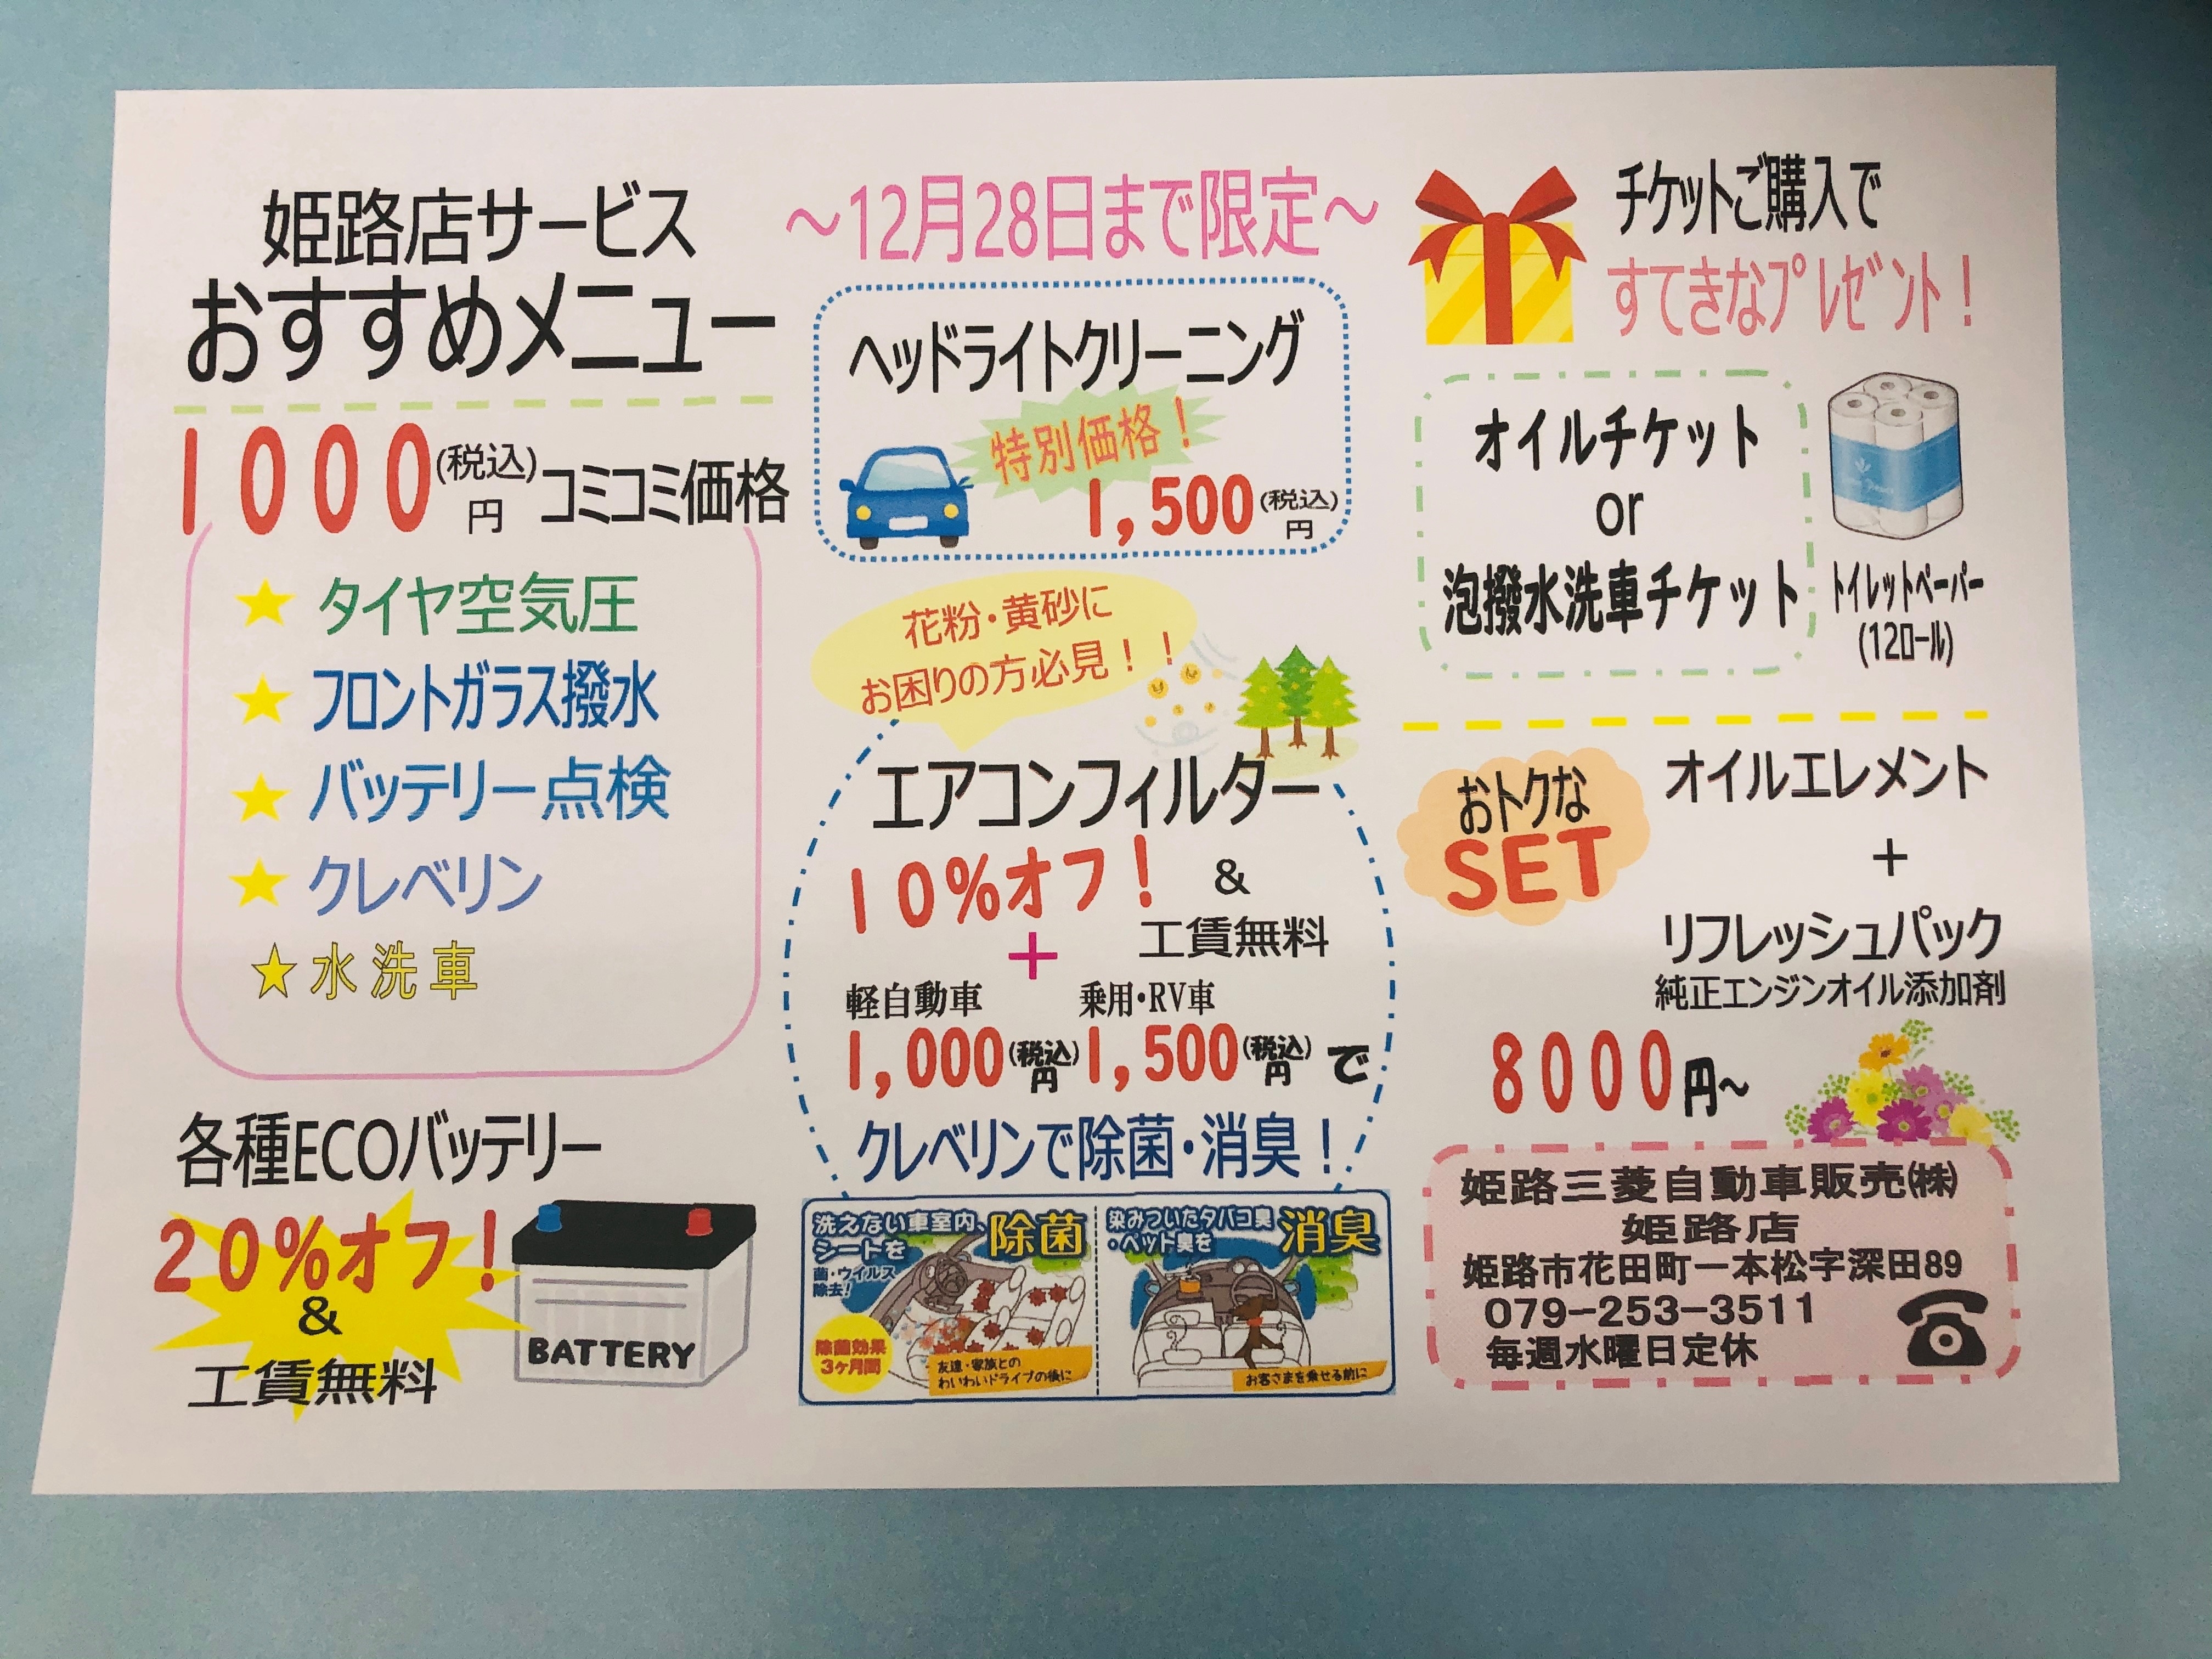 姫路店サービス
おすすめメニュー
1000(税込)円 コミコミ価格
★ タイヤ空気圧
★ フロントガラス撥水
★ バッテリー点検
★ クレベリン
★水洗車
各種ECOバッテリー
20%オフ!
&
工賃無料
BATTERY
～12月28日まで限定～
ヘッドライトクリーニング
特別価格!
1,500(税込)円
花粉・黄砂に
お困りの方必見!!
エアコンフィルター
10%オフ! &
工賃無料
+
軽自動車 乗用・RV車
1,000(税込)円 1,500(税込)円 で
クレベリンで除菌・消臭!
洗えない車室内、
シートを 除菌
菌・ウイルス
除去!
除菌効果
3ヶ月間
友達・家族との
わいわいドライブの後に
染みついたタバコ臭
・ペット臭を 消臭
お客さまを乗せる前に
チケットご購入で
すてきなプレゼント!
オイルチケット
or
泡撥水洗車チケット
トイレットペーパー
(12ロール)
おトクな
SET
オイルエレメント
+
リフレッシュパック
純正エンジンオイル添加剤
8000円～
姫路三菱自動車販売㈱
姫路店
姫路市花田町一本松字深田89
079-253-3511
毎週水曜日定休